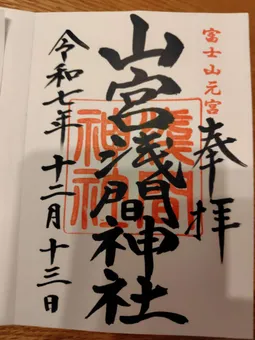 富士山元宮
奉拝
山宮浅間神社
淺間
神社
令和七年 十二月 十三日